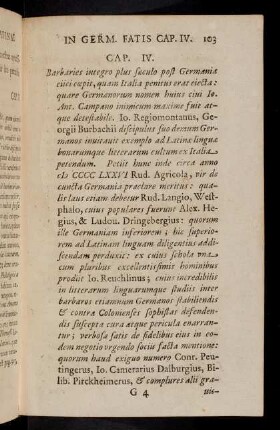 IN GERM. FATIS CAP. IV. 103
CAP. IV.
Barbaries integro plus sæculo post Germania
eiici cœpit, quam Italia penitus erat eiecta:
quare Germanorum nomen huius æui Io.
Ant. Campano inimicum maxime fuit at-
que detestabile. Io. Regiomontanus, Ge-
orgii Burbachii discipulus suo demum Ger-
manos inuitauit exemplo ad Latinæ linguæ
bonarumque litterarum cultum ex Italia
petendum. Petiit hunc inde circa anno
cIɔ CCCC LXXVI Rud. Agricola, vir de
cuncta Germania præclare meritus: qua-
lis laus etiam debetur Rud. Langio, West-
phalo, cuius populares fuerunt Alex. He-
gius, & Ludou. Dringebergius: quorum
ille Germaniam inferiorem; hic superio-
rem ad Latinam linguam diligentius addi-
scendam perduxit: ex cuius schola vna
cum pluribus excellentissimis hominibus
prodiit Io. Reuchlinus; cuius incredibilis
in litterarum linguarumque studiis inter
barbaros etiamnum Germanos stabiliendis
& contra Colonienses sophistas defenden-
dis suscepta cura atque pericula enarran-
tur; verbosa satis de fidelibus eius in eo-
dem negotio vrgendo sociis facta mentione:
quorum haud exiguo numero Conr. Peu-
tingerus, Io. Camerarius Dalburgius, Bi-
lib. Pirckheimerus, & complures alii gra-
G 4